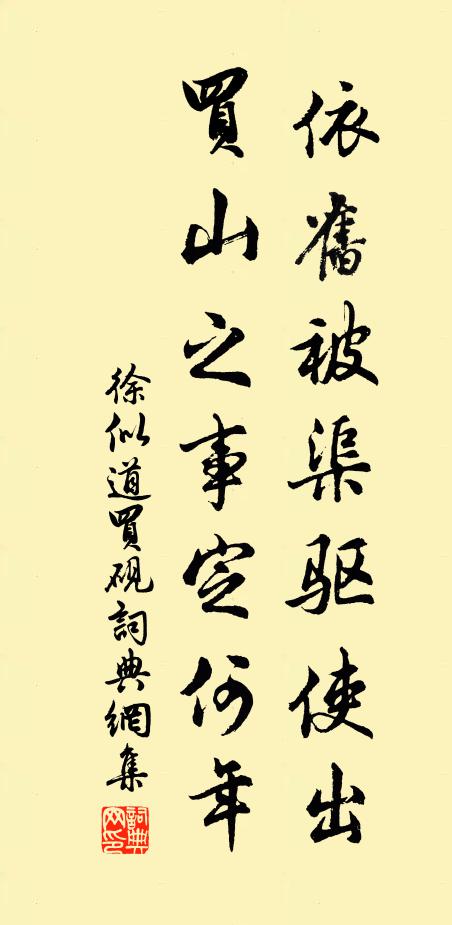 依舊被渠驱使出
買山之事定何年
徐似道買硯詞典網集
詞典網印